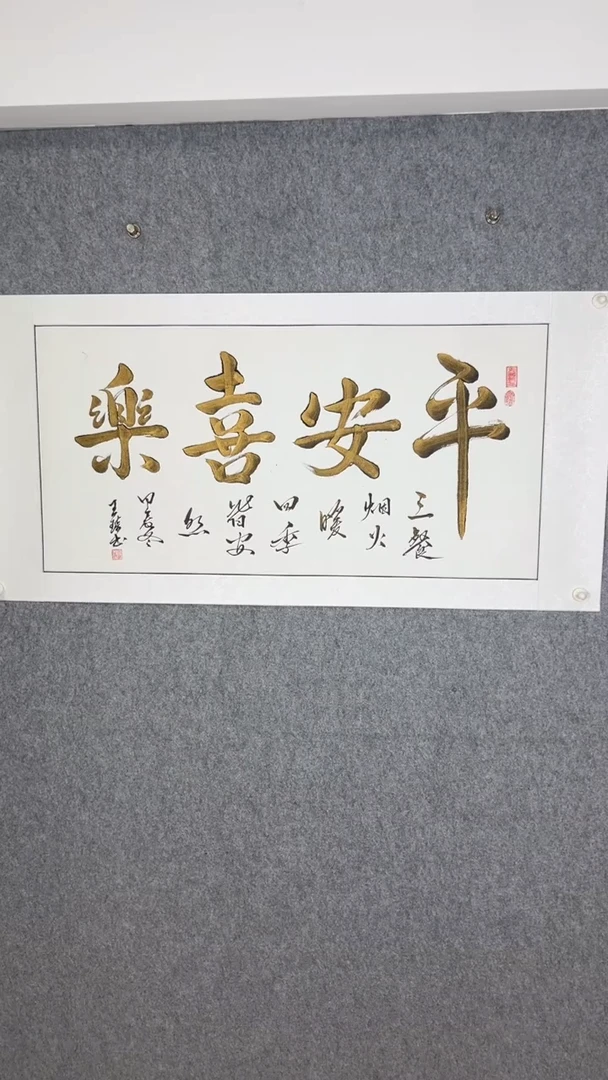 平安喜樂
三餐
烟火
暖
四季
皆安
然
甲辰冬